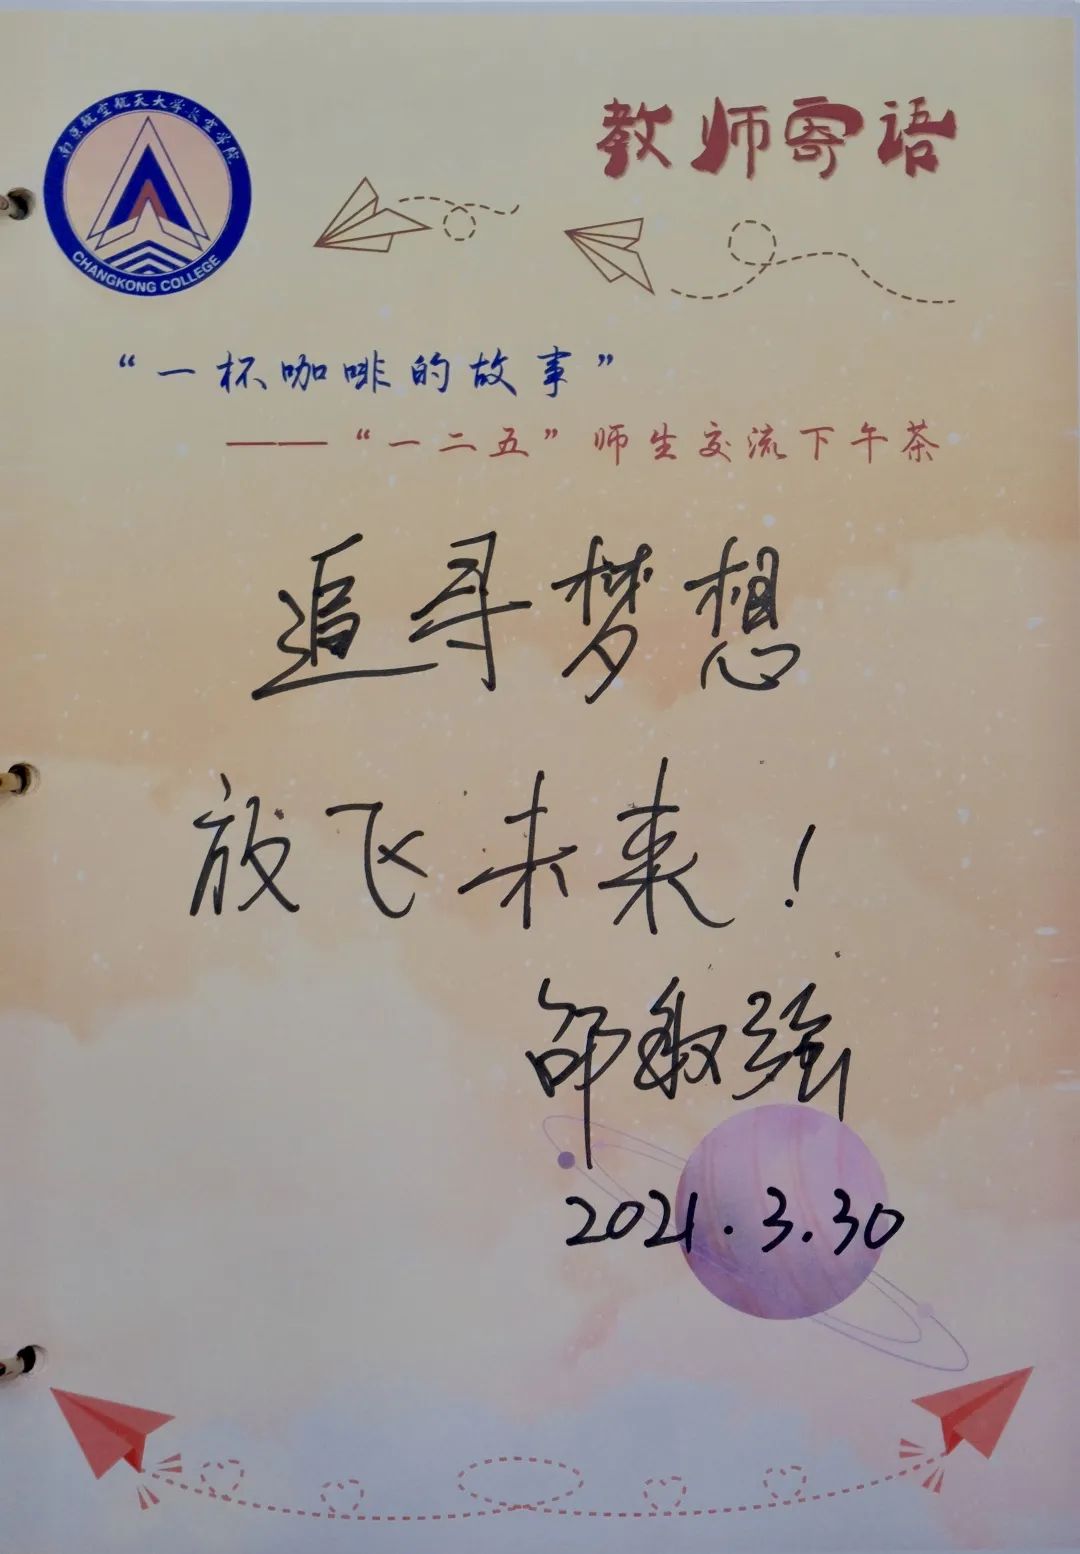 南京航空航天大学长空学院
CHANGKONG COLLEGE
教师寄语
“一杯咖啡的故事”
——“一二五”师生交流下午茶
追寻梦想
放飞未来！
邵敏强
2021.3.30